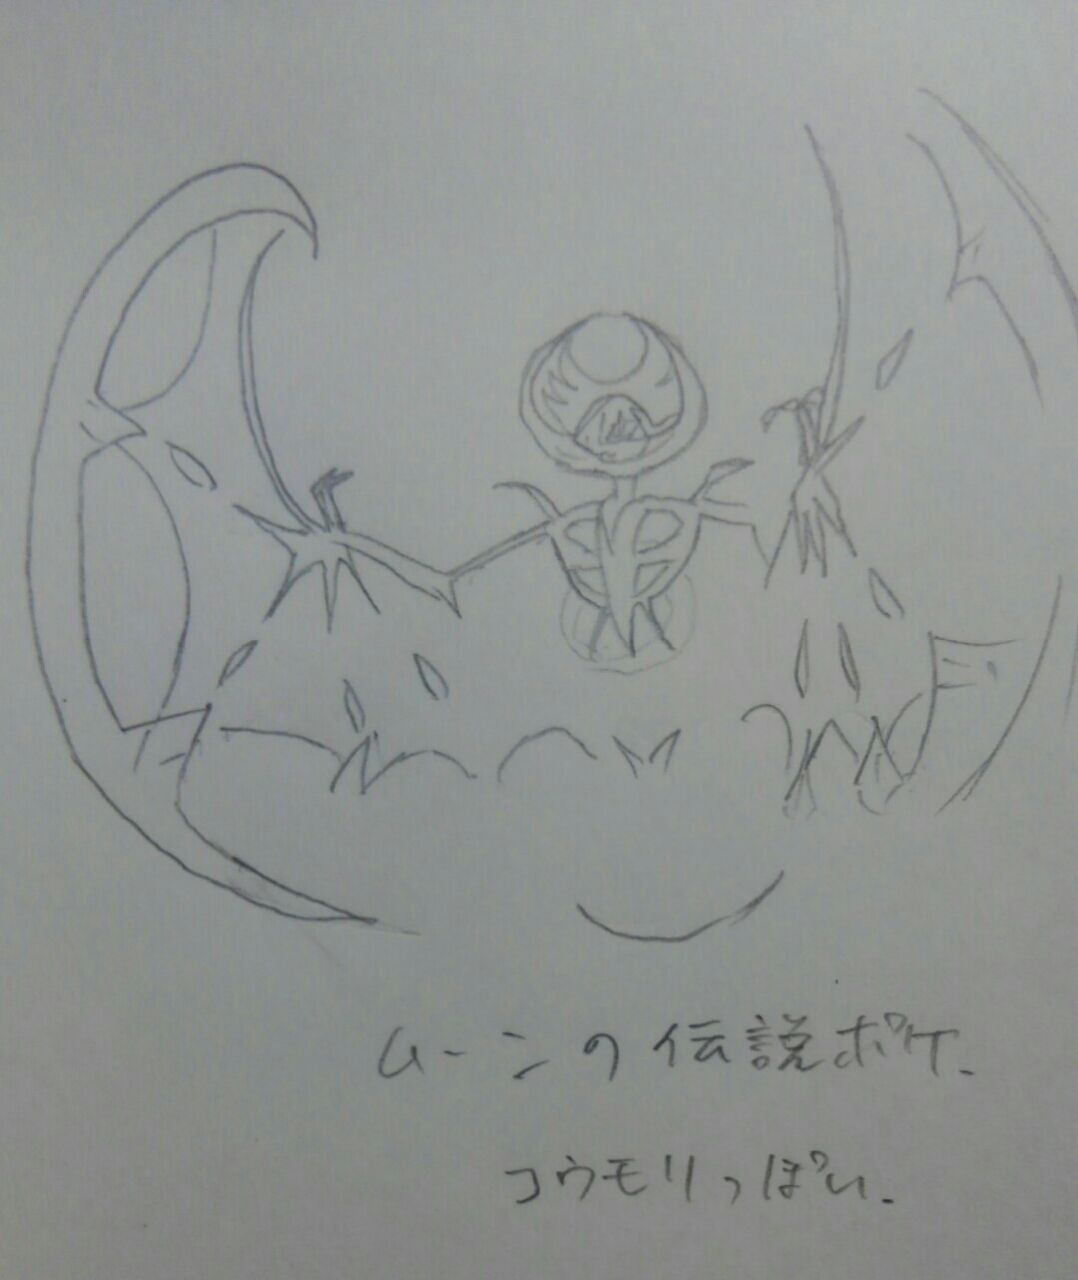 ムーンの伝説ポケ.
コウモリっぽい.